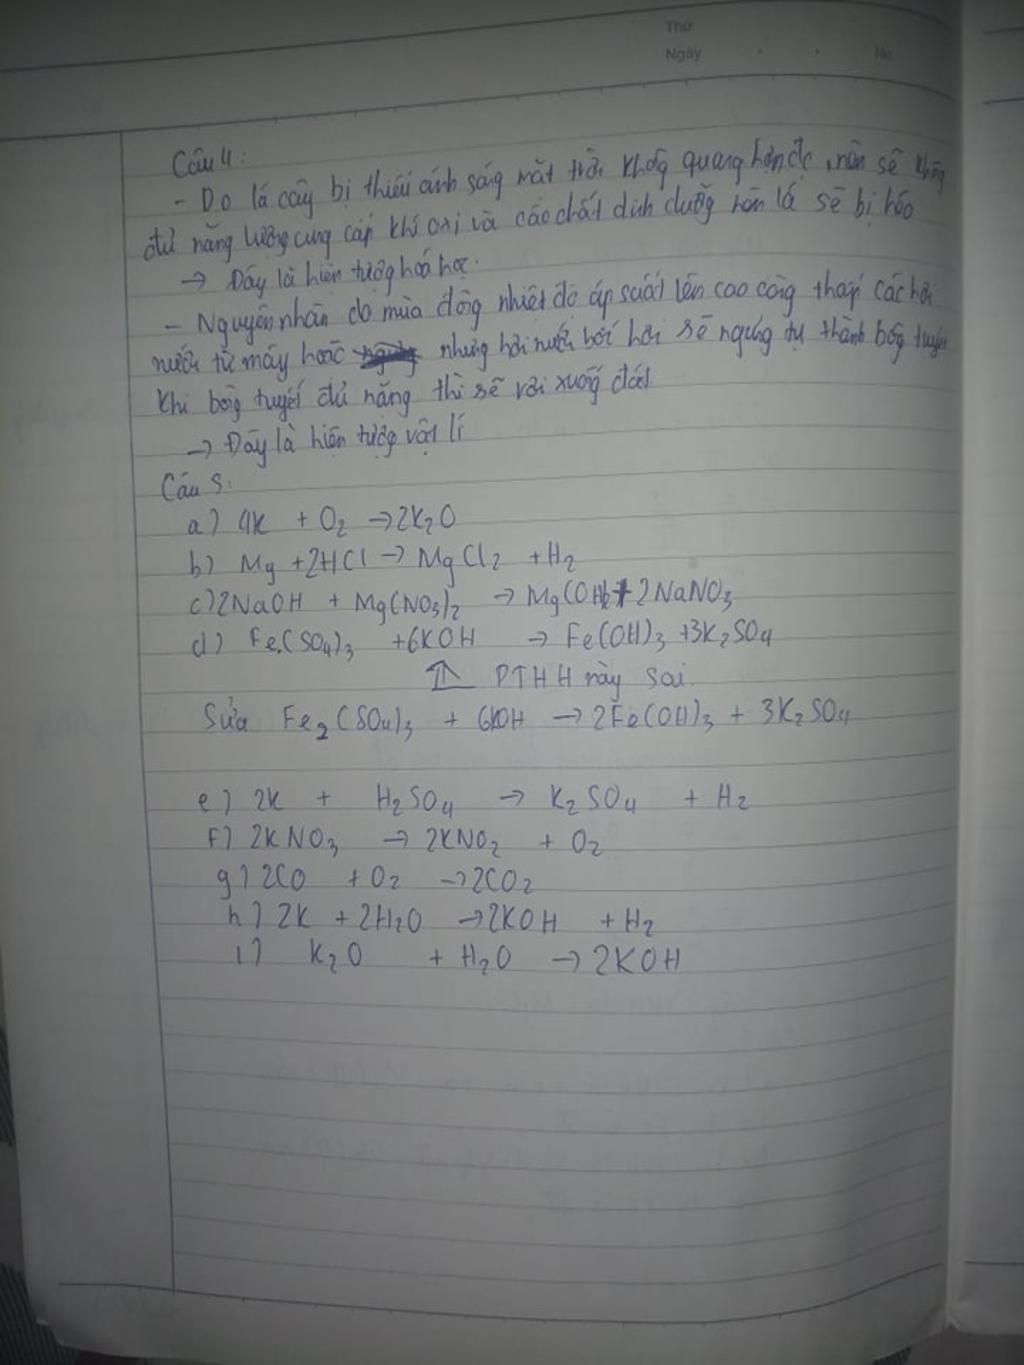 Thứ
Ngày
No
Câu 4:
- Do lá cây bị thiếu ánh sáng mặt trời không quang hợp đc, nên sẽ không
đủ năng lượng cung cấp khí oxi và các chất dinh dưỡng nên lá sẽ bị héo
→ Đây là hiện tượng hoá học.
- Nguyên nhân do mùa đông nhiệt độ áp suất lên cao càng thấp các hơi
nước từ mây hoặc những hơi nước bốc hơi sẽ ngưng tụ thành bông tuyết
khi bông tuyết đủ nặng thì sẽ rơi xuống đất
→ Đây là hiện tượng vật lí
Câu 5:
a) 4K + O2 → 2K2O
b) Mg + 2HCl → MgCl2 + H2
c) 2NaOH + Mg(NO3)2 → Mg(OH)2 + 2NaNO3
d) Fe(SO4)3 + 6KOH → Fe(OH)3 + 3K2SO4
PTHH này sai.
Sửa Fe2(SO4)3 + 6KOH → 2Fe(OH)3 + 3K2SO4
e) 2K + H2SO4 → K2SO4 + H2
f) 2KNO3 → 2KNO2 + O2
g) 2CO + O2 → 2CO2
h) 2K + 2H2O → 2KOH + H2
i) K2O + H2O → 2KOH